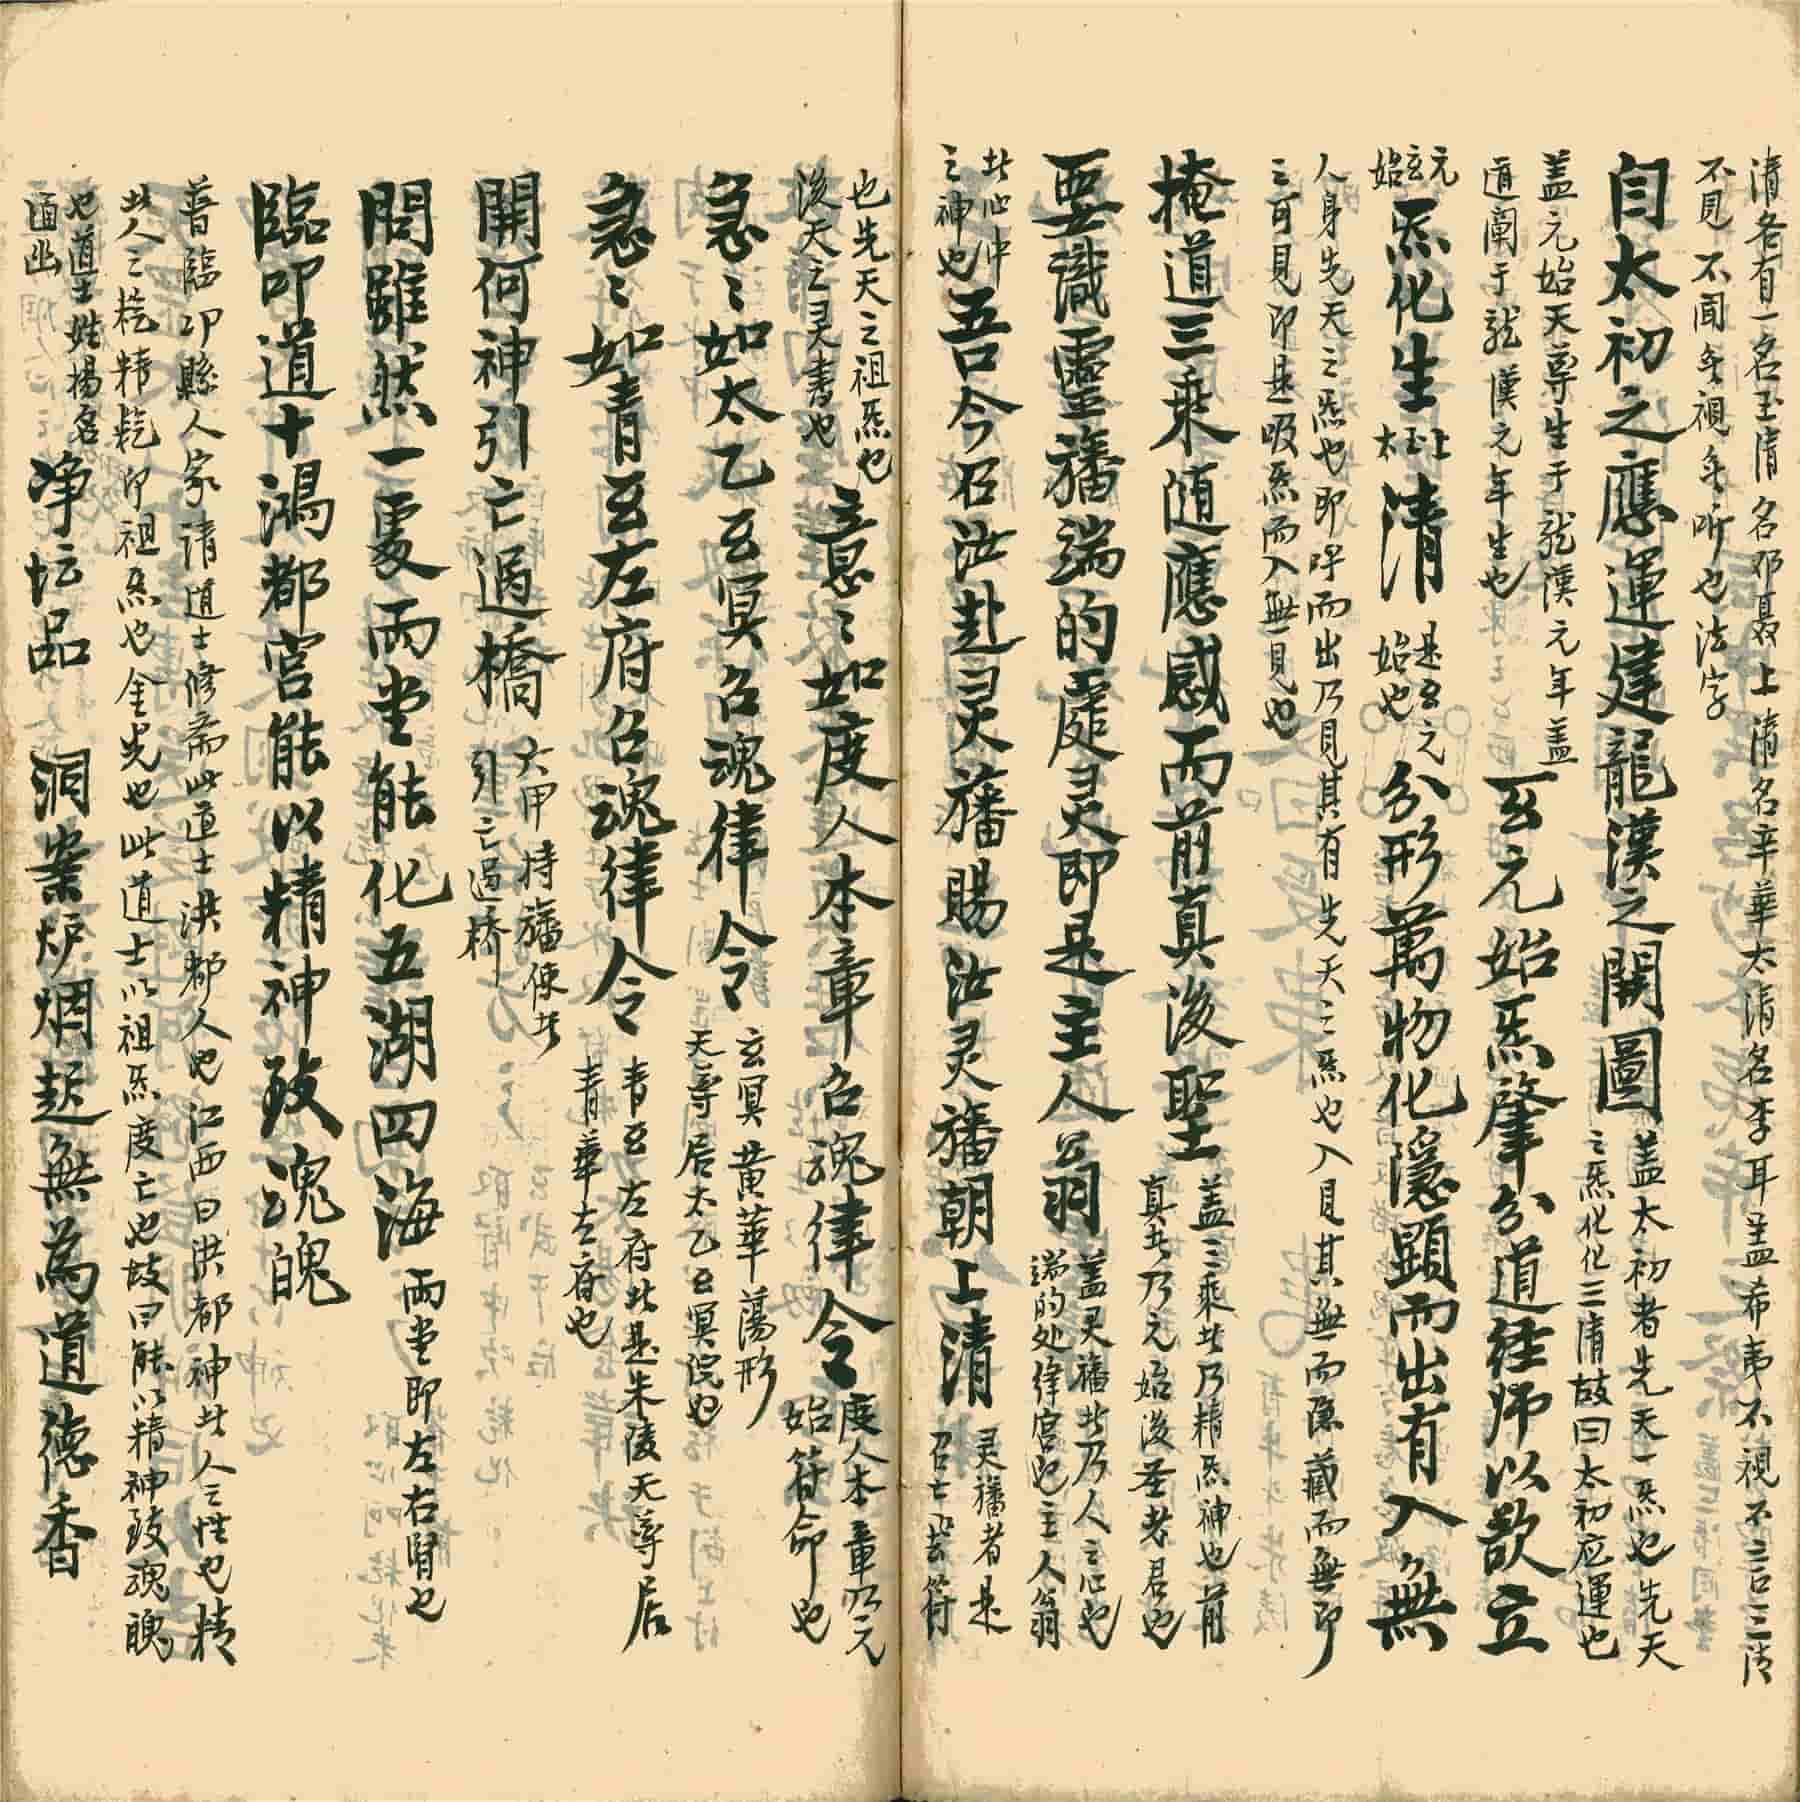 清各有一名玉清名㔫聂上清名辛華太清名李耳盖希夷不視不言三清
不見不聞無視無听也法字
自太初之應運建龍漢之開圖
盖太初者先天一炁也先天
之炁化化三清故曰太初应運也
盖元始天尊生于龙漢元年盖
道闡于龙漢元年生也
玄元始炁肇分道経师以欲立
元玄始
炁化生
上玉太
清
是玄元始也
分形萬物化隱顯而出有入無
人身先天之炁也即呼而出乃見其有先天之炁也入見其無而隐藏而無即
三可見即是吸炁而入無見也
掩道三乘随應感而前真後聖
盖三乘此乃精炁神也前
真此乃元始後圣老君也
要識靈旛端的處灵即是主人翁
盖灵旛此乃人之心也
端的处律宫也主人翁
此心中
之神也
吾今召汝赴灵旛賜汝灵旛朝上清
灵旛者是
召亡灵符
也先天之祖炁也
後天之灵書也
急急如度人本章召魂律令
度人本章乃元
始符命也
急急如太乙玄冥召魂律令
玄冥黄華蕩形
天尊居太乙玄冥院也
急急如青玄左府召魂律令
青玄左府此是朱陵天尊居
青華左府也
開何神引亡過橋
六甲持旛使者
引亡過桥
問雖然一處兩堂能化五湖四海
兩堂即左右腎也
臨卬道十鴻都宮能以精神致魂魄
普臨卬縣人家请道士修斋此道士洪都人也江西曰洪都神此人之性也精
此人之精乾即祖炁也金光也此道士以祖炁度亡也故曰能以精神致魂魄
也道士姓楊名
凾幽
净坛品
洞案炉烟起無為道德香